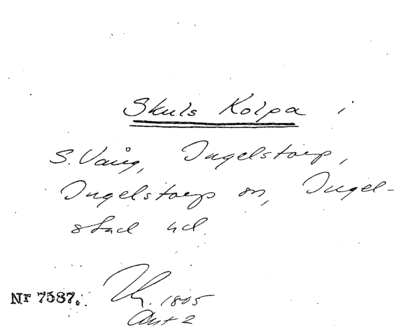 Skuls Kolpa i
S. Vång, Ingelstorp,
Ingelstorp sn, Ingel-
stad hd.
Nr 7587. 1805
Akt 2